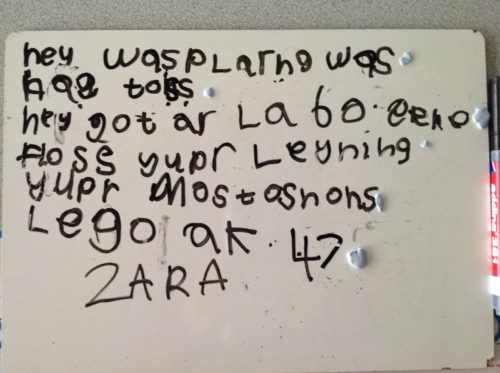 hey wasplarng was
hae toks
hey got ar La bo
Hoss yupr Leyning
yupr Mostasnons
Lego ak 47
ZARA